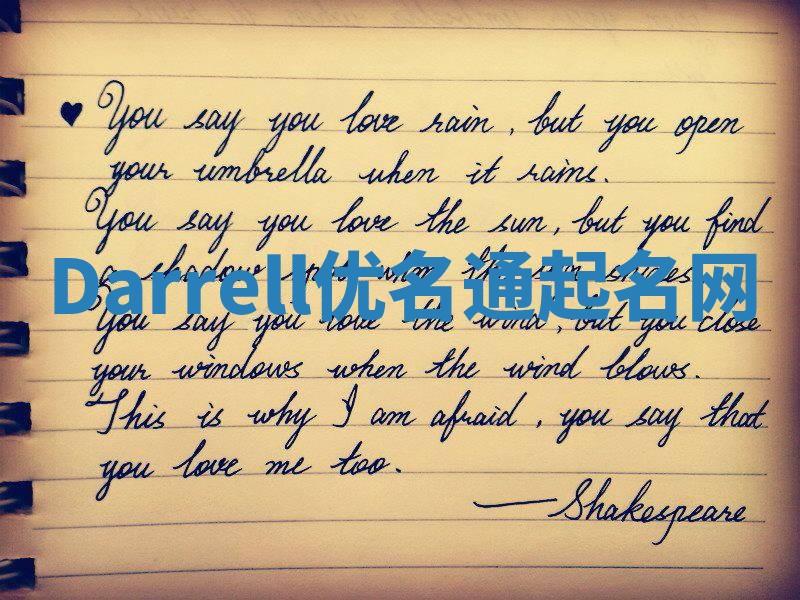 ♥ You say you love rain, but you open
your umbrella when it rains.
You say you love the sun, but you find
a shadow spot when the sun shines
Darrell优名通起名网
You say you love the wind, but you close
your windows when the wind blows.
This is why I am afraid, you say that
you love me too.
—Shakespeare